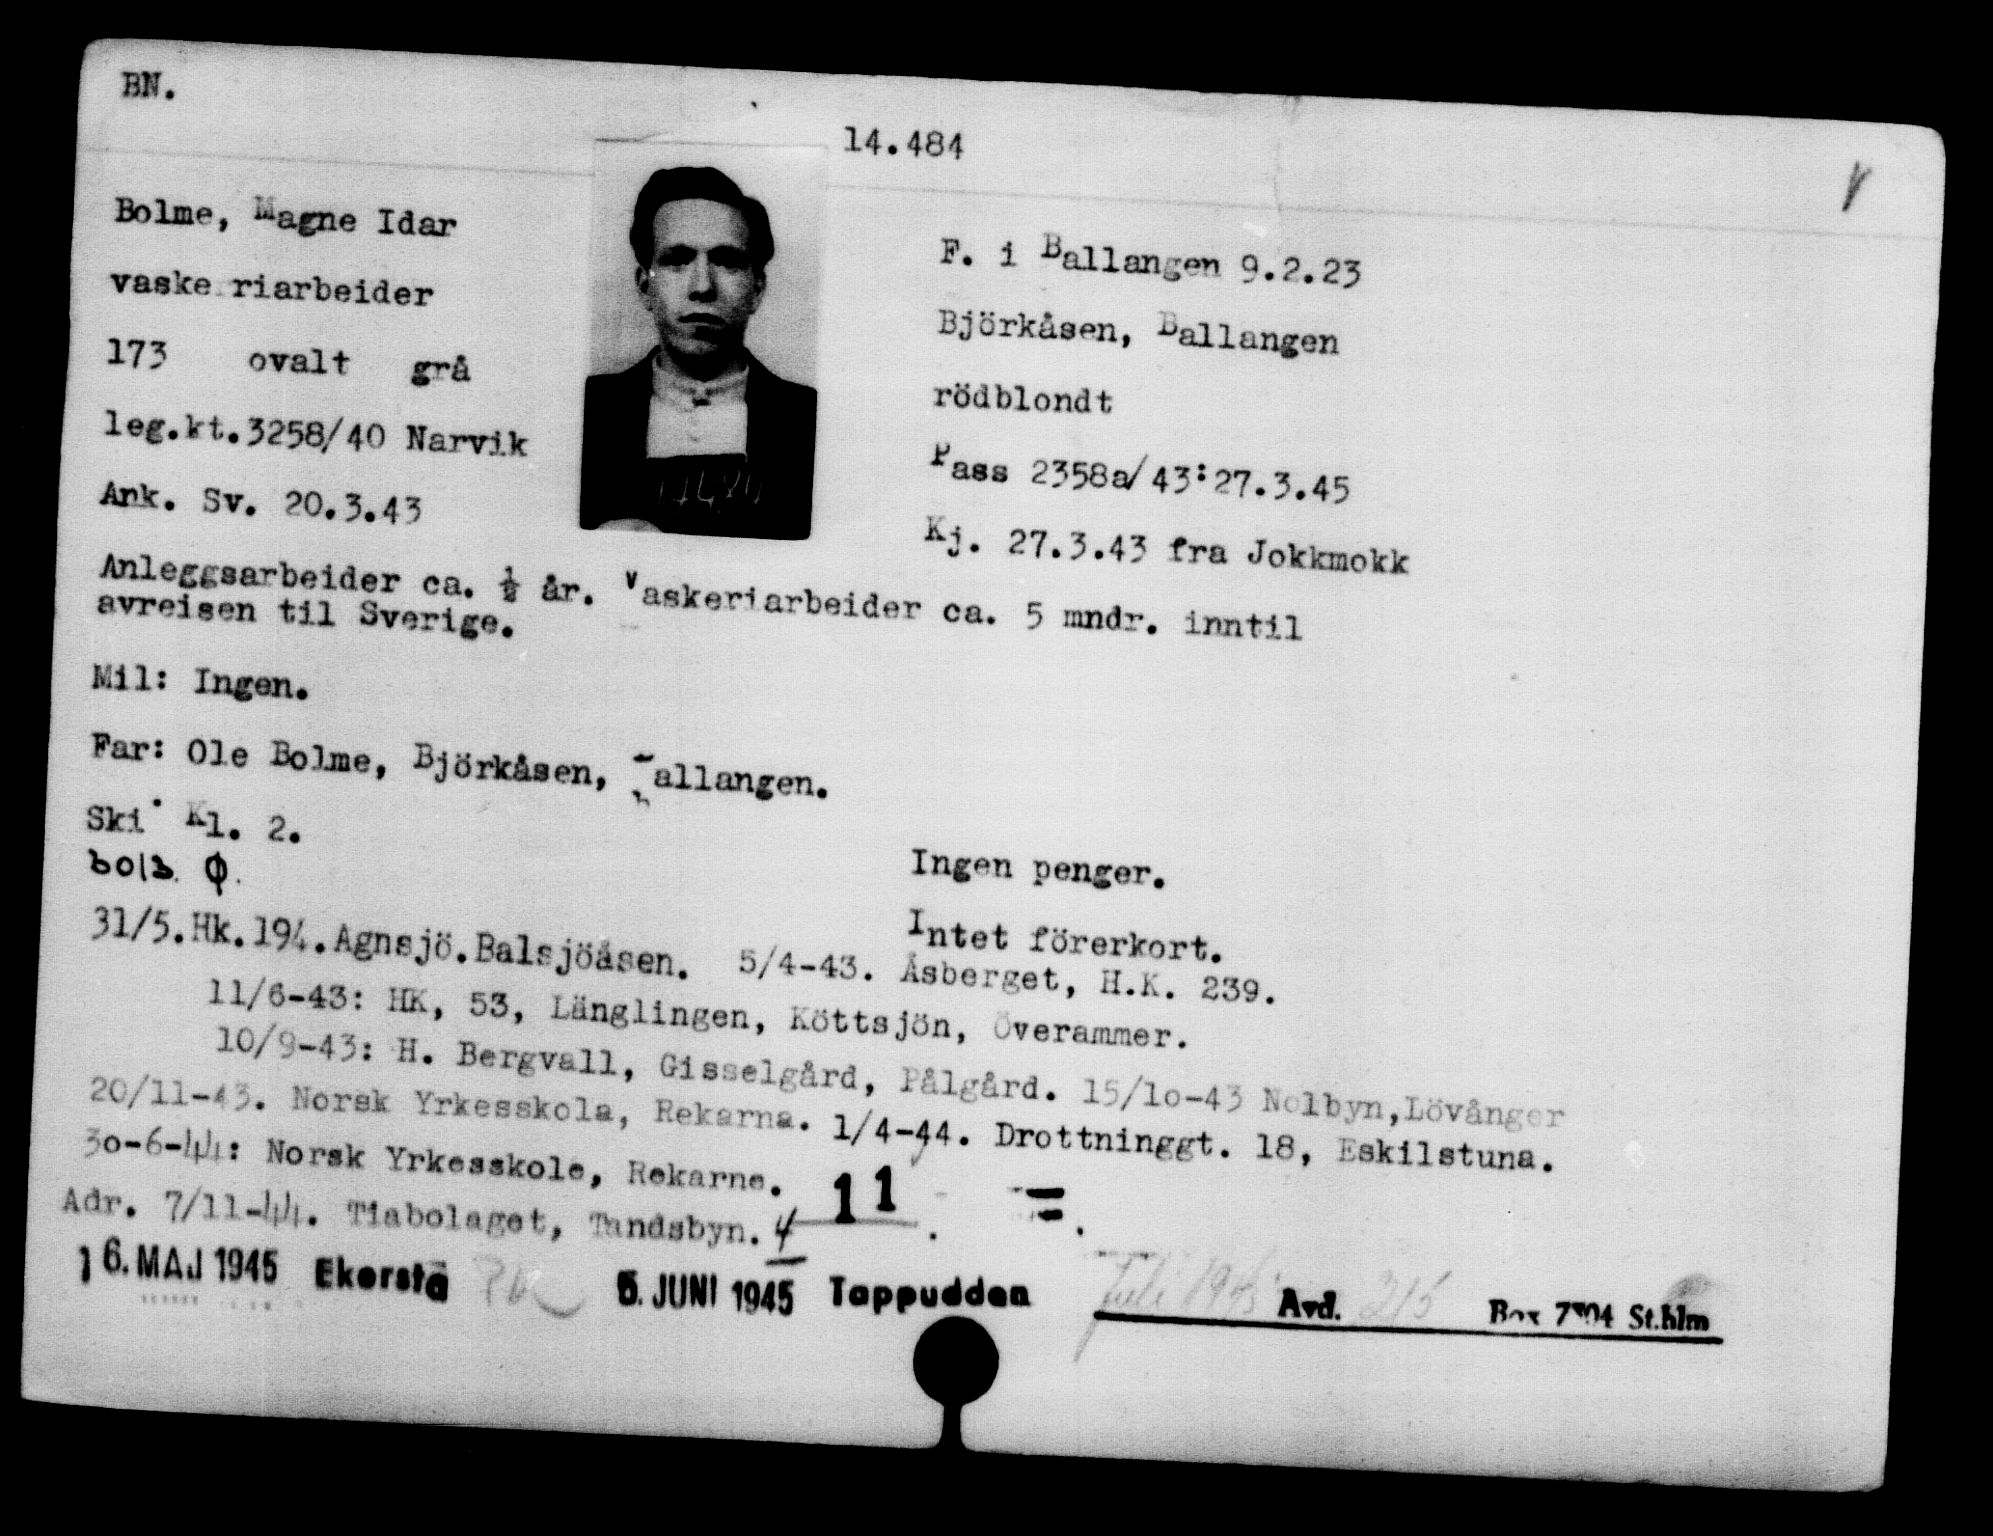 BN.
14.484
Bolme, Magne Idar
F. i Ballangen 9.2.23
vaskeriarbeider
Björkåsen, Ballangen
173 ovalt grå
rödblondt
leg.kt.3258/40 Narvik
Pass 2358a/43:27.3.45
Ank. Sv. 20.3.43
Kj. 27.3.43 fra Jokkmokk
Anleggsarbeider ca. ½ år. Vaskeriarbeider ca. 5 mndr. inntil
avreisen til Sverige.
Mil: Ingen.
Far: Ole Bolme, Björkåsen, Ballangen.
Ski Kl. 2.
Ingen penger.
Intet förerkort.
31/5.Hk.194.Agnsjö.Balsjöåsen. 5/4-43. Åsberget, H.K. 239.
11/6-43: HK, 53, Länglingen, Köttsjön, Överammer.
10/9-43: H. Bergvall, Gisselgård, Pålgård. 15/10-43 Nolbyn,Lövånger
20/11-43. Norsk Yrkesskola, Rekarna. 1/4-44. Drottninggt. 18, Eskilstuna.
30-6-44: Norsk Yrkesskole, Rekarne. 11
Adr. 7/11-44. Tiabolaget, Tandsbyn. 4
16. MAJ 1945 Ekorstå 5. JUNI 1945 Toppudden Juli 1945 Avd. 215 Box 7304 St.hlm